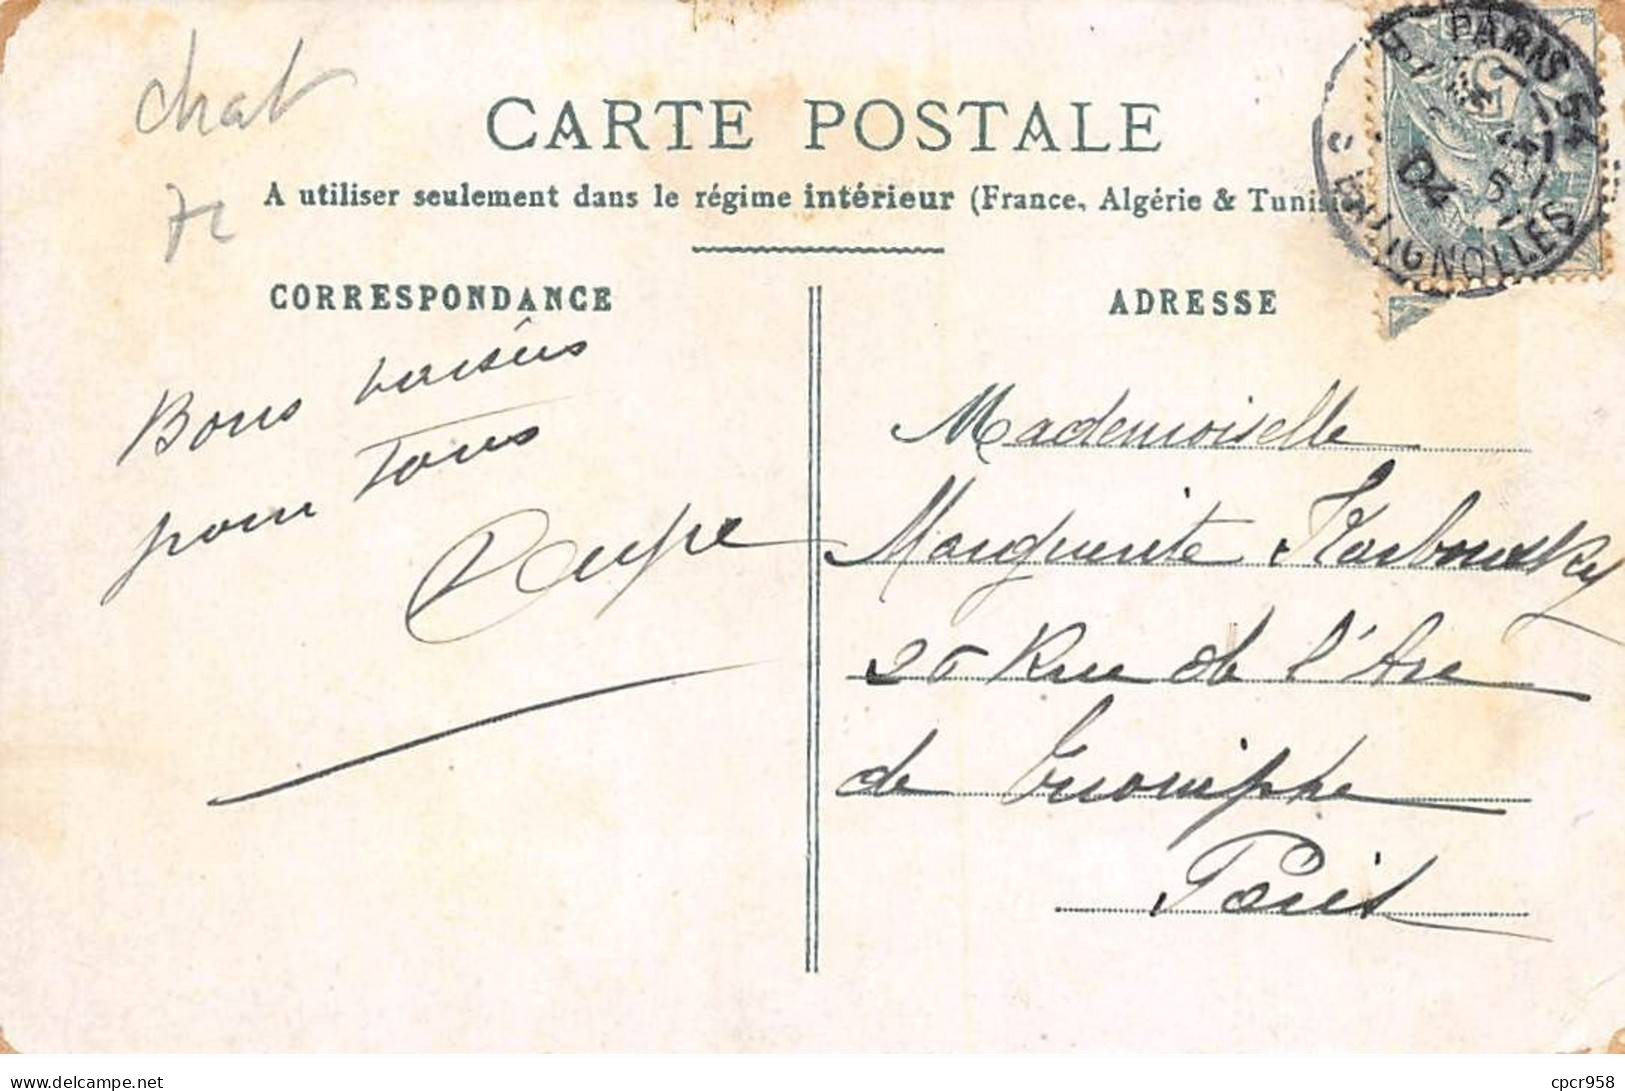 chat
CARTE POSTALE
A utiliser seulement dans le régime intérieur (France, Algérie & Tunisie
CORRESPONDANCE
Bons baisers
pour Tous
ADRESSE
Mademoiselle
Marguerite
26 Rue de l'Arc
de Triomphe
Paris
PARIS 54
04
BATIGNOLLES
cpcr958